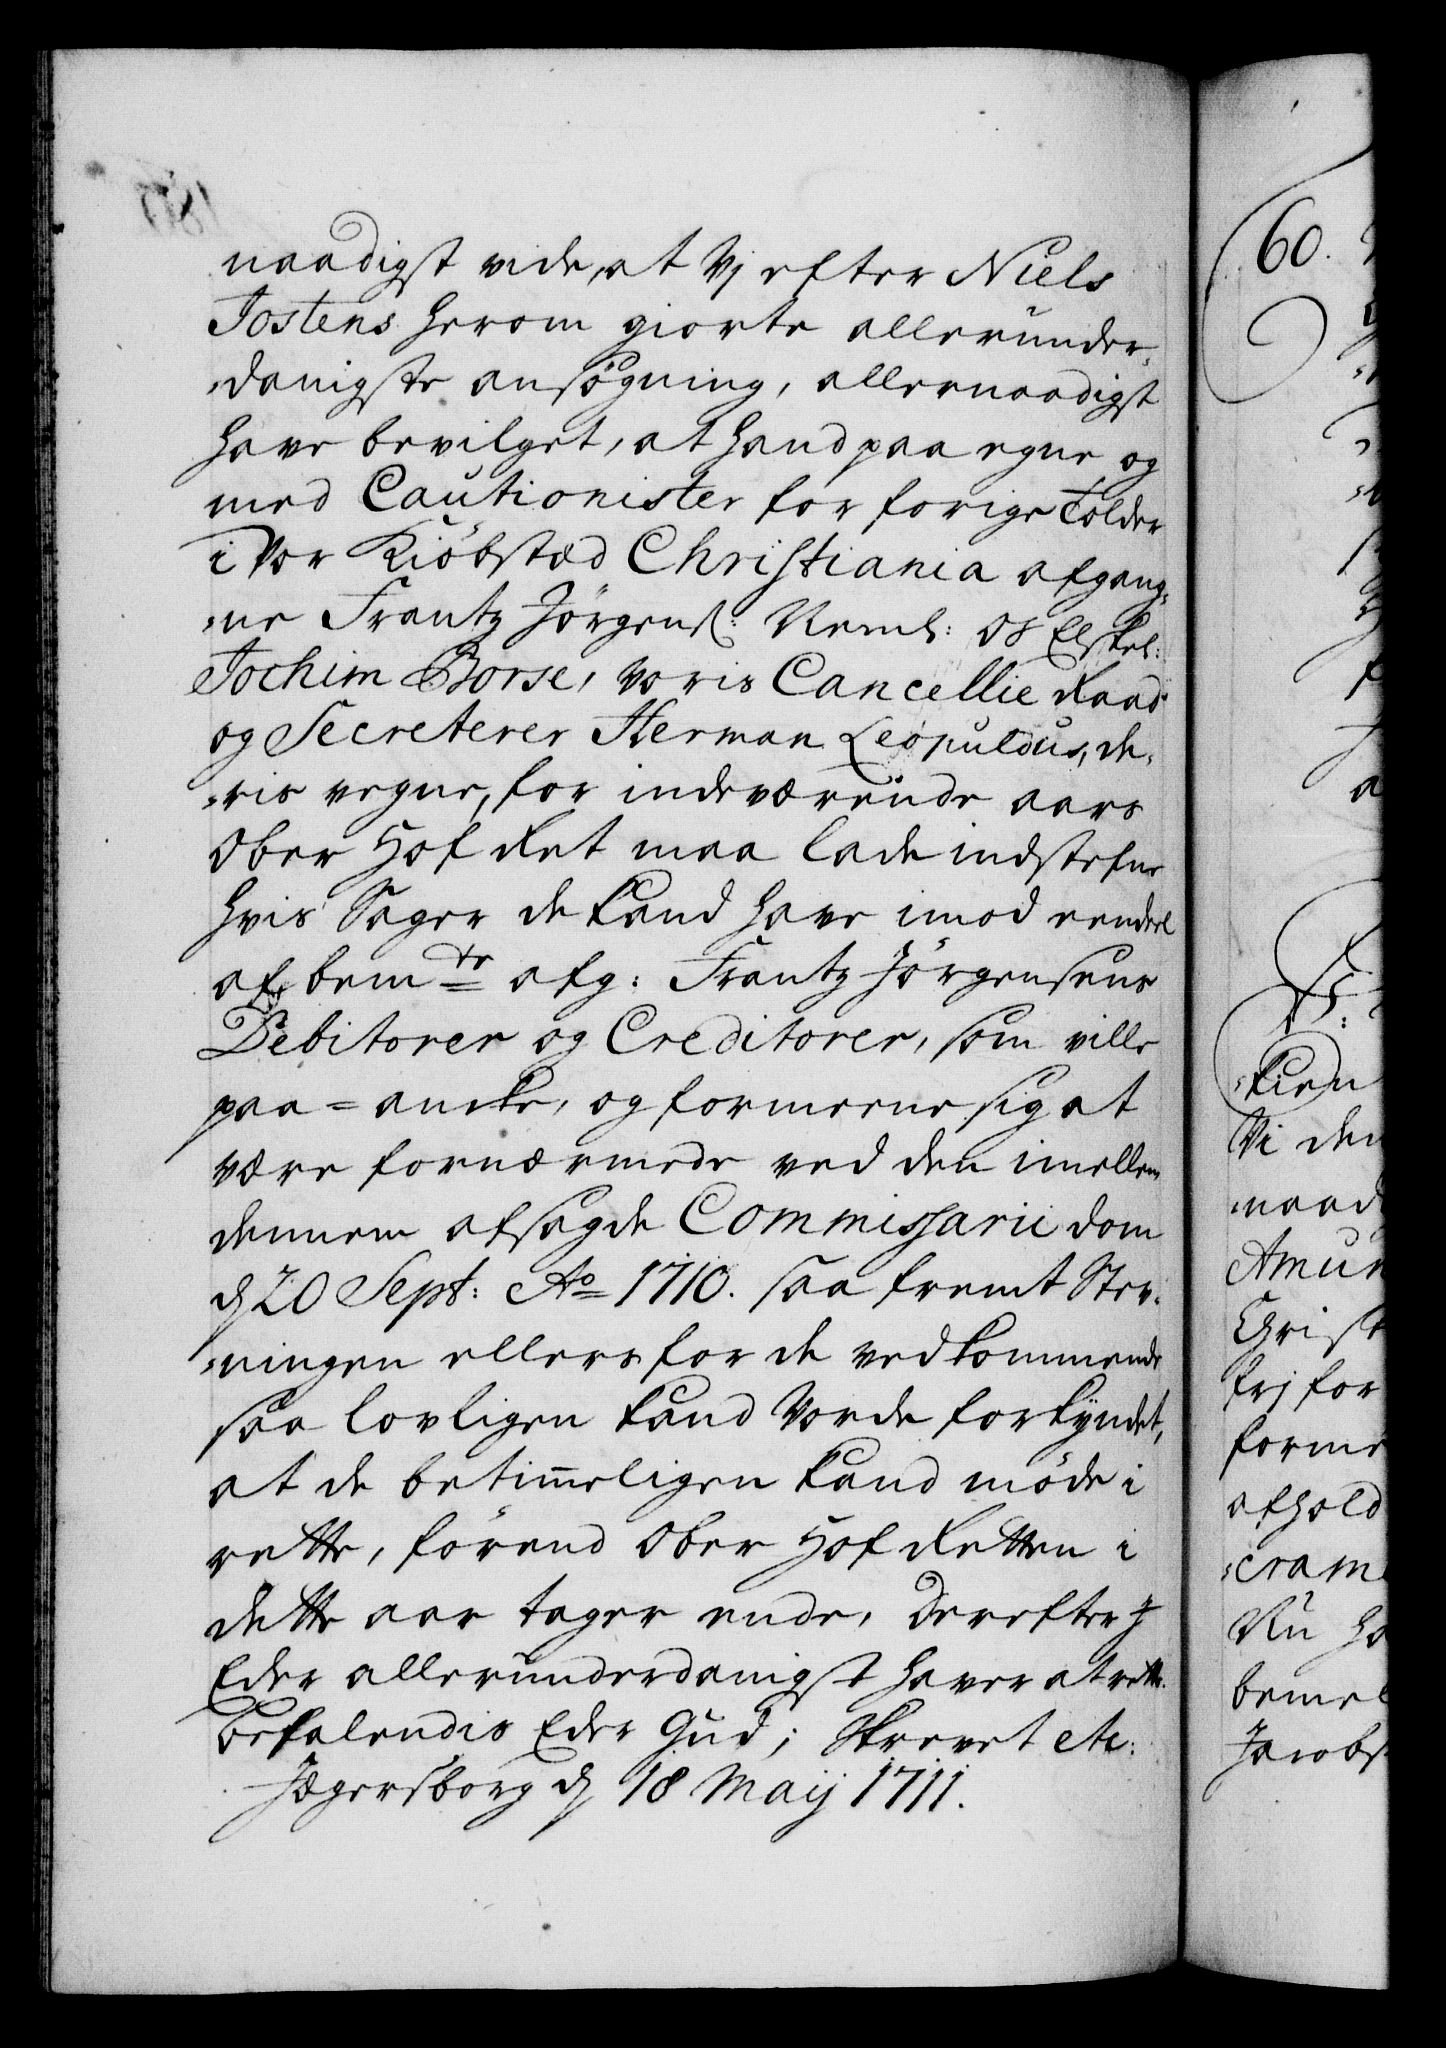 naadigst vide, at Vj efter Niels
Jostens herom giorte allerunder¬
¬danigste ansøgning, allernaadigst
have bevilget, at hand paa egne og
med Cautionister for forige Tolder
i Vor Kiöbstæd Christiania afgang¬
¬ne Frantz Jörgens: Neml: Os Elskel:
Jochim Borse, voris Cancellie Raad
og Secreterer Herman Leopuldus, de¬
¬ris vegne, for indeværende aars
Ober Hof Ret maa lade indstefne
hvis Sager de kand have imod eendeel
af bemte afg: Frantz Jörgensens
Debitorer og Creditorer, som ville
paa=ancke, og formeene sig at
være fornærmede ved den imellem
dennem afsagde Commissarii dom
d 20 Sept: Ao 1710. saa fremt Stev¬
¬ningen ellers for de vedkommende
saa lovligen kand vorde forkyndet,
at de betimeligen kand møde i
rette, förend Ober Hof Retten i
dette aar tager ende, Derefter I
Eder allerunderdanigst haver at rette.
befalendis Eder Gud; Skrevet etc:
Jægersborg d 18 Maij 1711.
60.
¬kien
Vi den
¬naad
Amun
Christ
frj for
forme
afhold
¬cram
Nu ha
bemel
Jacobs